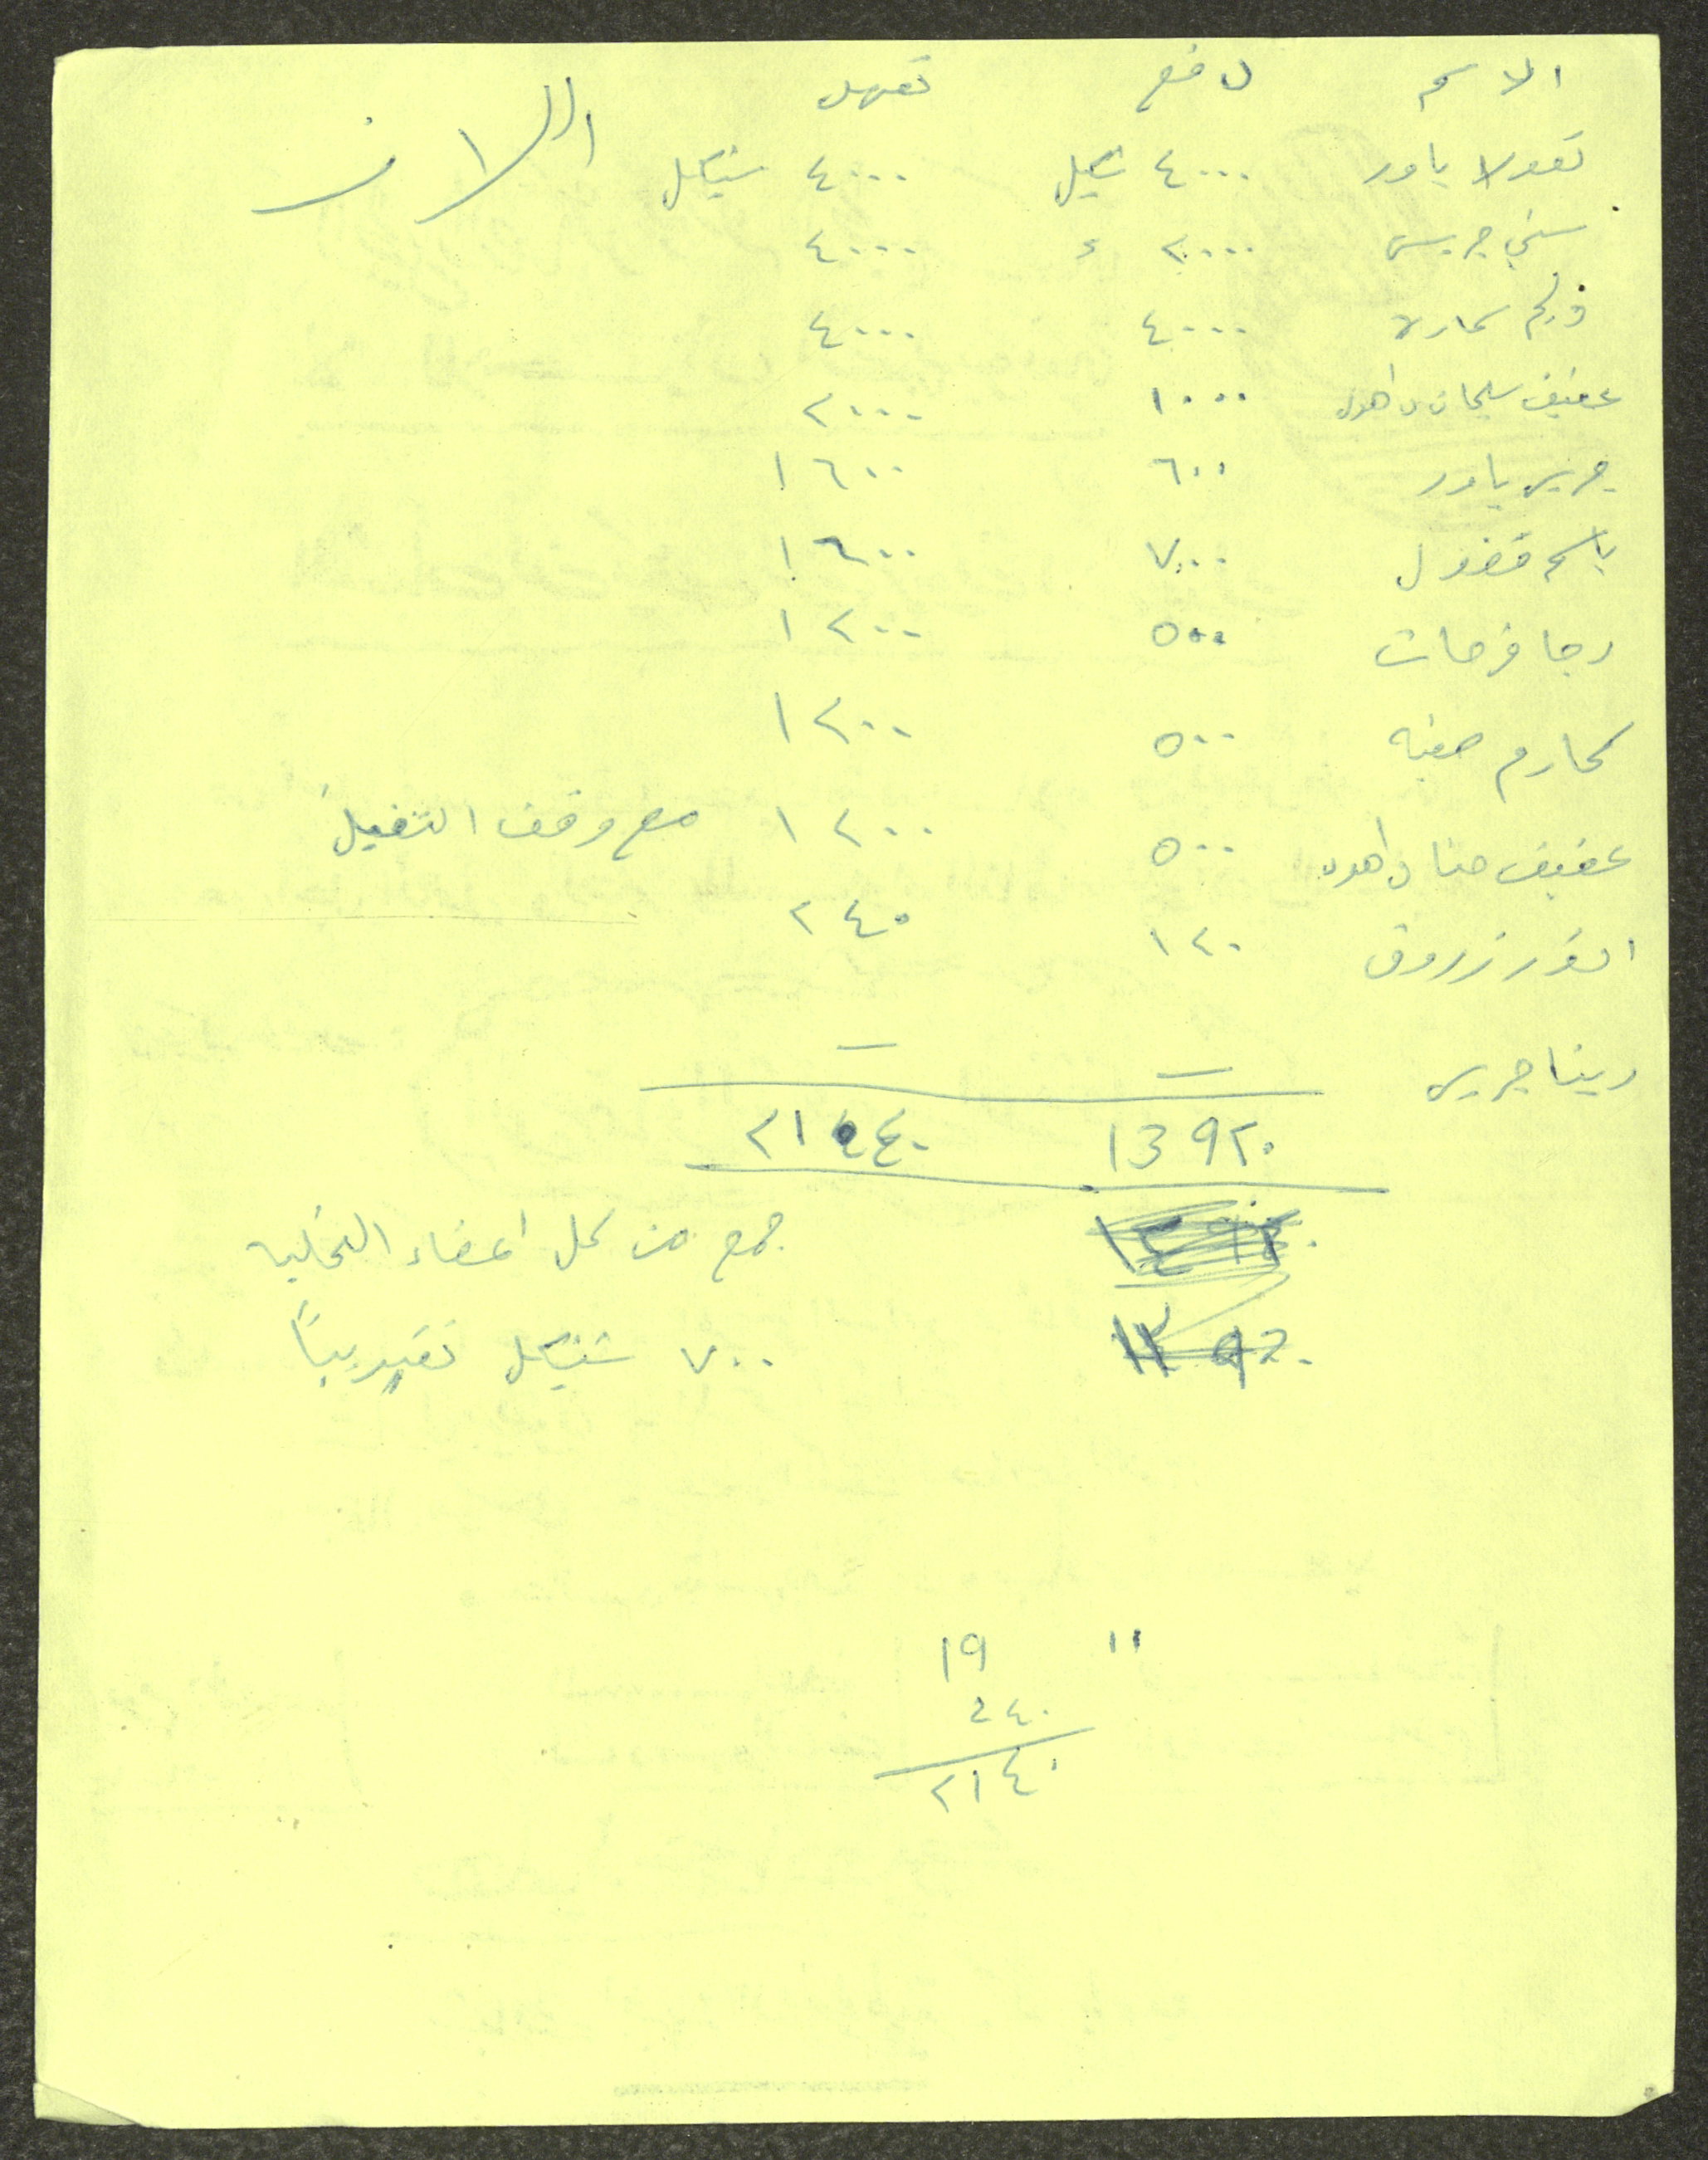 الاسم دفع تعهد
نقولا ياور ٤٠٠٠ شيكل ٤٠٠٠ شيكل
سني جريس ٢٠٠٠ ء ٤٠٠٠
وليم ٤٠٠٠ ٤٠٠٠
عفيف سليمان داهود ١٠٠٠ ٢٠٠٠
جريس ياور ٦٠٠ ١٦٠٠
باسم ٧٠٠ ١٦٠٠
رجا فرحات ٥٠٠ ١٢٠٠
مكارم ٥٠٠ ١٢٠٠
عفيف حنا داهود ٥٠٠ ١٢٠٠ مع وقف التنفيذ
انور زروق ١٢٠ ٢٤٠
دينا جريس — —
13٩٢٠ ٢١٤٤٠
جمع من كل اعضاء الخلية
٧٠٠ شيكل تقريباً
١٩ ١١
٢٤٠
٢١٤٠